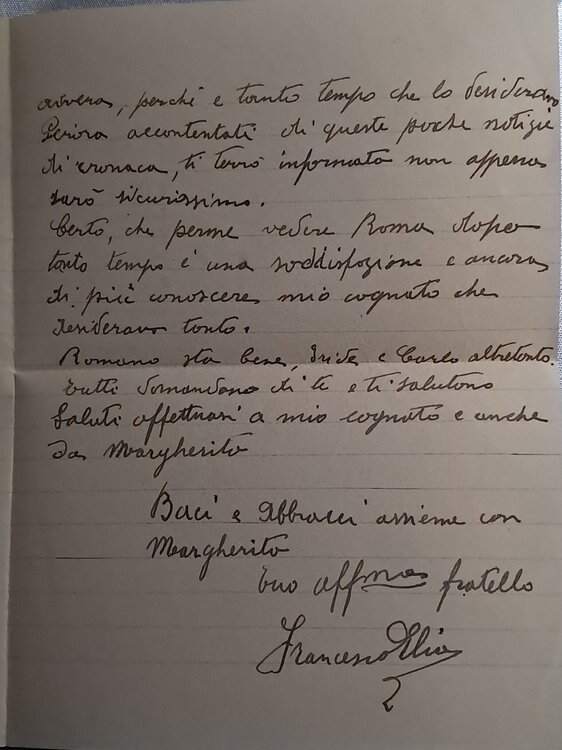 avvera, perchè e tanto tempo che lo desideravo
Perora accontentati di queste poche notizie
di cronaca, ti terrò informata non appena
sarò sicurissimo.
Certo, che perme vedere Roma dopo
tanto tempo è una soddisfazione e ancora
di più conoscere mio cognato che
desideravo tanto.
Romano sta bene, Iride e Carlo altretanto.
Tutti domandano di te e ti salutano
Saluti affettuosi a mio cognato e anche
da Margherita
Baci e Abbracci assieme con
Margherita
tuo affmo fratello
Francesco Elia